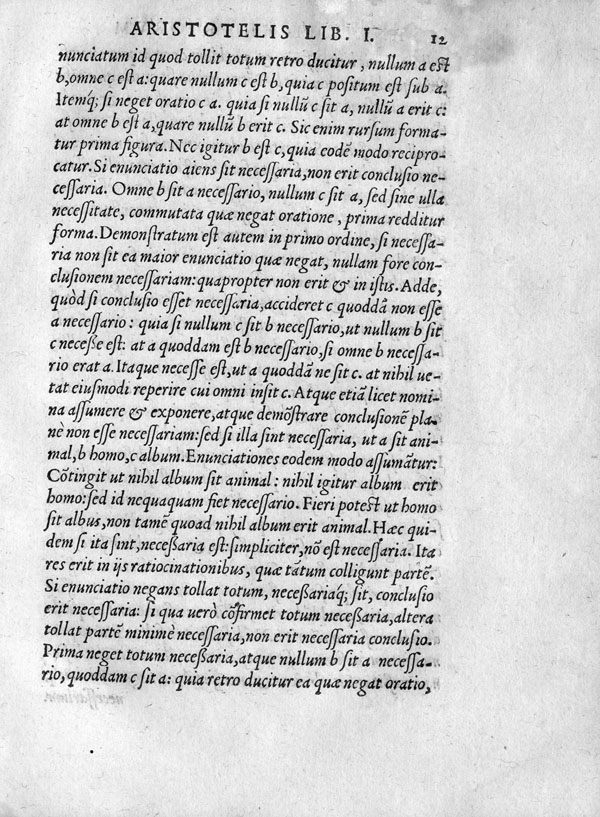 ARISTOTELIS LIB. I. 12
nunciatum id quod tollit totum retro ducitur, nullum a est
b, omne c est a: quare nullum c est b, quia c positum est sub a.
Itemq́; si neget oratio c a. quia si nullũ c sit a, nullũ a erit c:
at omne b est a, quare nullũ b erit c. Sic enim rursum forma-
tur prima figura. Nec igitur b est c, quia eodẽ modo recipro-
catur. Si enunciatio aiens sit necessaria, non erit conclusio ne-
cessaria. Omne b sit a necessario, nullum c sit a, sed sine ulla
necessitate, commutata quæ negat oratione, prima redditur
forma. Demonstratum est autem in primo ordine, si necessa-
ria non sit ea maior enunciatio quæ negat, nullam fore con-
clusionem necessariam: quapropter non erit & in istis. Adde,
quòd si conclusio esset necessaria, accideret c quoddã non esse
a necessario: quia si nullum c sit b necessario, ut nullum b sit
c necesse est: at a quoddam est b necessario, si omne b necessa-
rio erat a. Itaque necesse est, ut a quoddã ne sit c. at nihil ue-
tat eiusmodi reperire cui omni insit c. Atque etiã licet nomi-
na assumere & exponere, atque demõstrare conclusionẽ pla-
nè non esse necessariam: sed si illa sint necessaria, ut a sit ani-
mal, b homo, c album. Enunciationes eodem modo assumãtur:
Cõtingit ut nihil album sit animal: nihil igitur album erit
homo: sed id nequaquam fiet necessario. Fieri potest ut homo
sit albus, non tamẽ quoad nihil album erit animal. Hæc qui-
dem si ita sint, necessaria est: simpliciter, nõ est necessaria. Ita
res erit in ijs ratiocinationibus, quæ tãtum colligunt partẽ.
Si enunciatio negans tollat totum, necessariaq́; sit, conclusio
erit necessaria: si qua uerò cõfirmet totum necessaria, altera
tollat partẽ minimè necessaria, non erit necessaria conclusio.
Prima neget totum necessaria, atque nullum b sit a necessa-
rio, quoddam c sit a: quia retro ducitur ea quæ negat oratio,